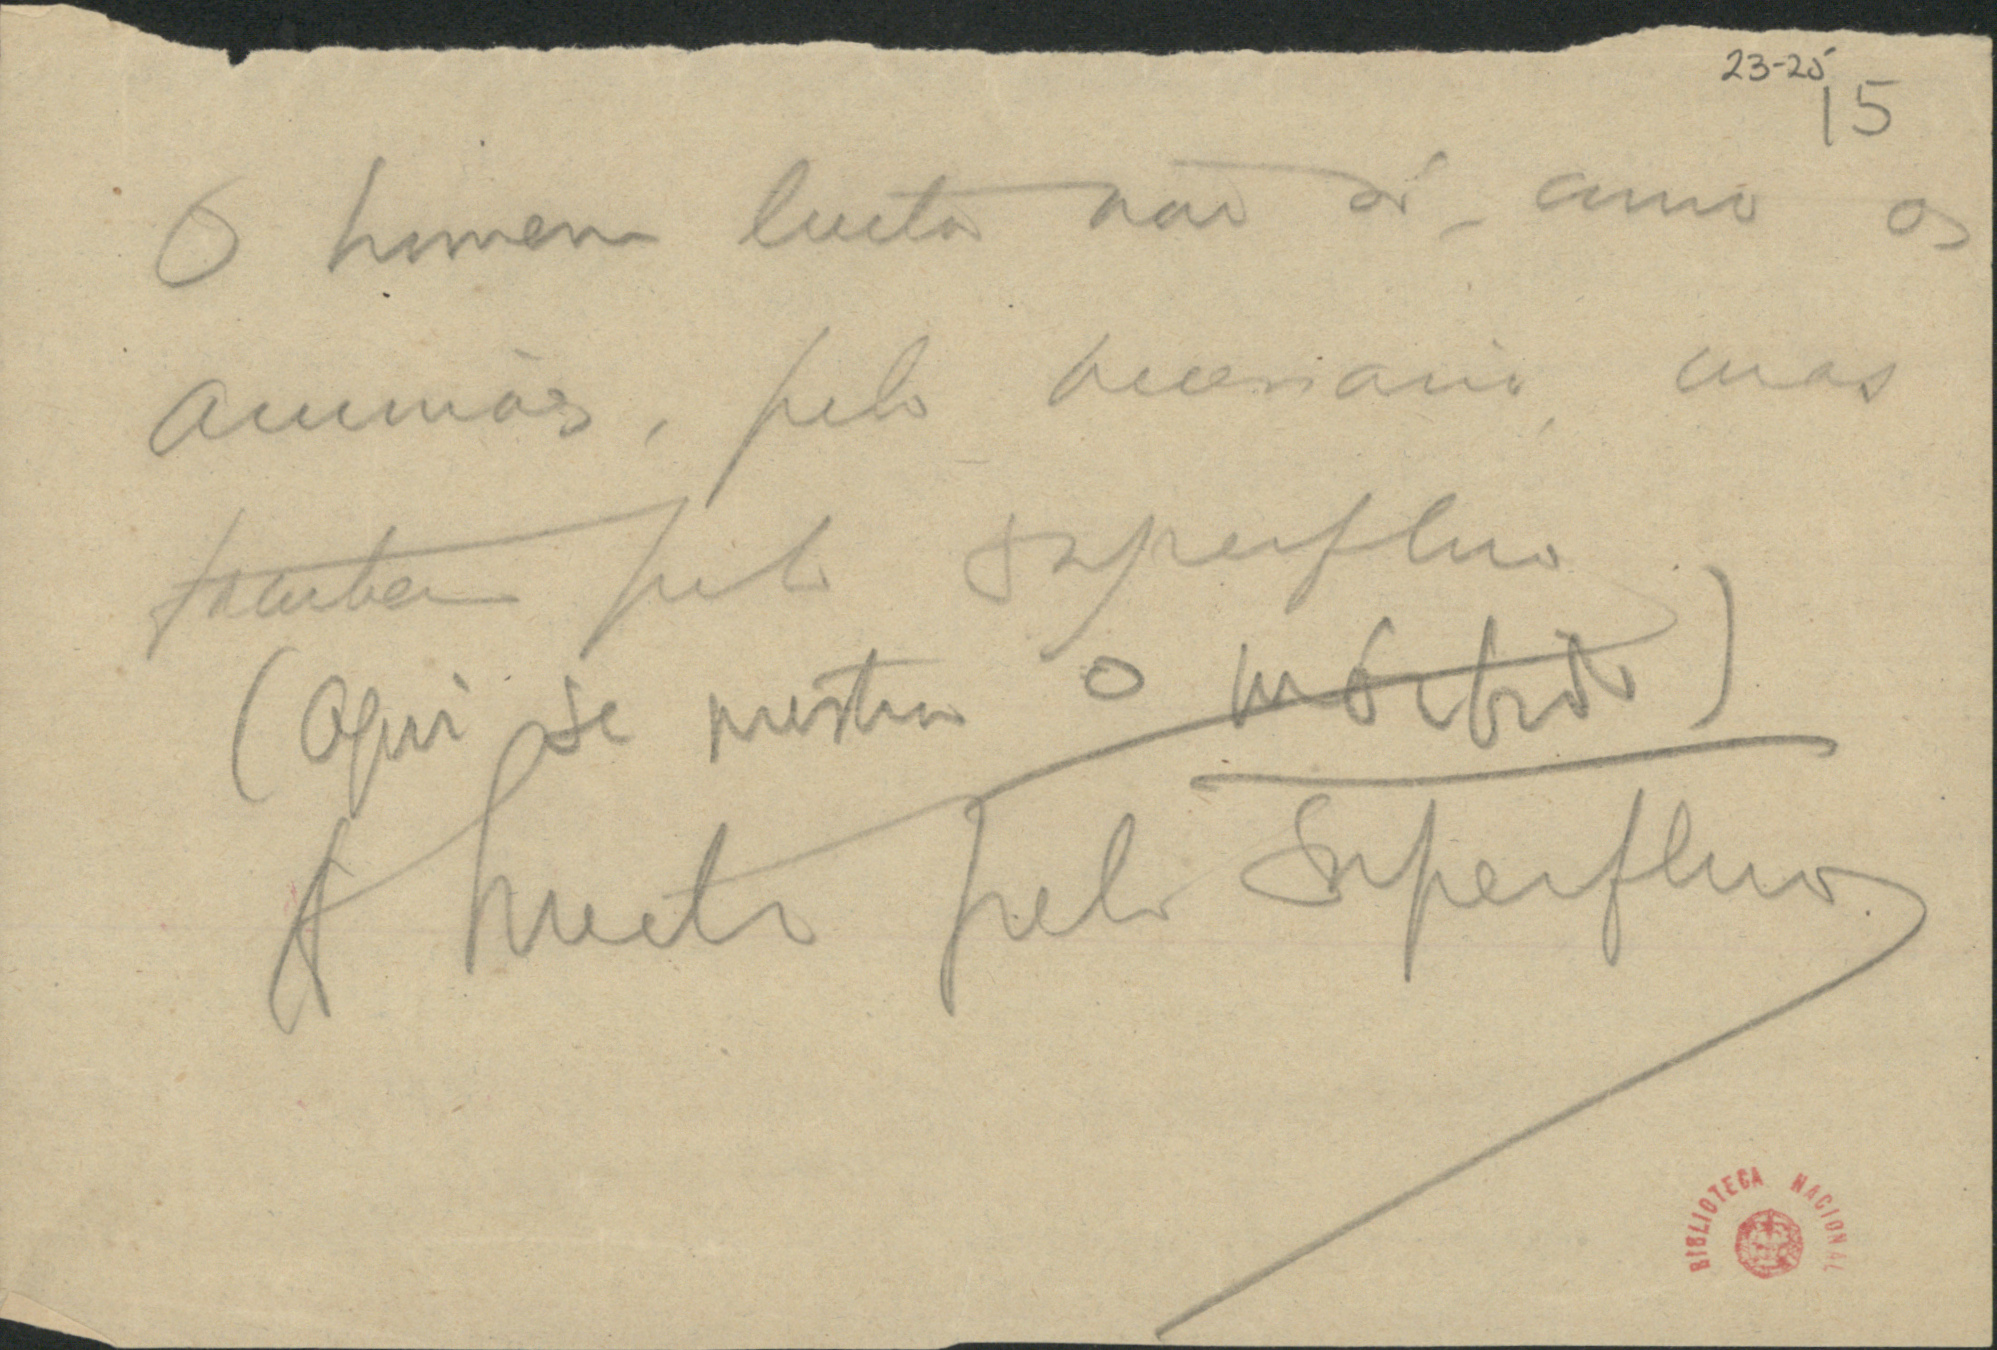 23-25
15
O homem lucta não só, como os
animaes, pelo necessario, mas
tambem pelo superfluo
(Aqui se mostra o morbido)
A lucta pelo superfluo.
BIBLIOTECA NACIONAL